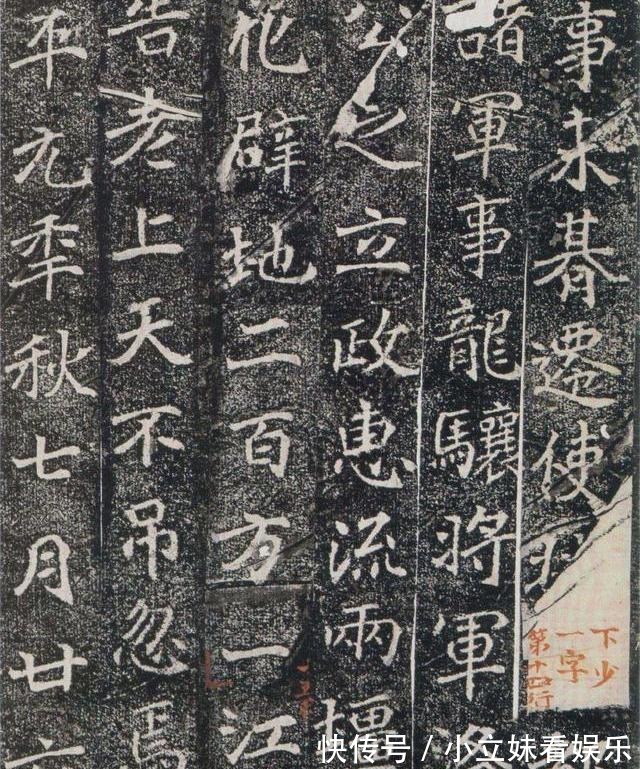 事未朞遷使
諸軍事龍驤將軍
公之立政惠流兩壃
化辟地二百方一江
告老上天不吊忽焉
平元年秋七月廿六
下少
一字
第十四行
快传号 / 小立妹看娱乐